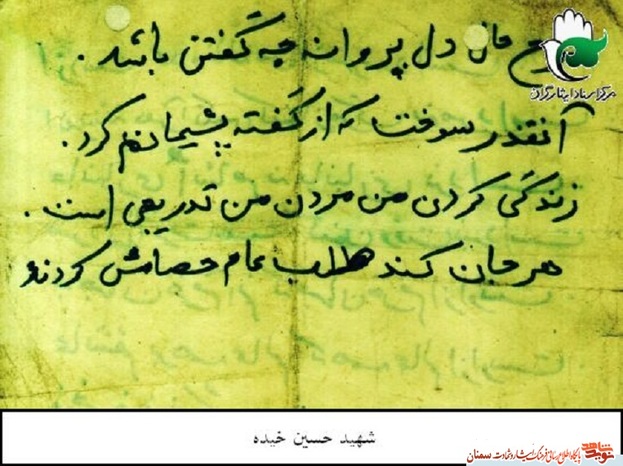 حال دل پروانه چه گفتن باشد .
مرکز اسناد ایثارگران
آنقدر سوخت که از گفته پشیمانم کرد .
زندگی کردن من مردن من تدریجی است .
هر جان کند طلب
شهید حسین خیده
نوید شاهد پایگاه اطلاع رسانی فرهنگ ایثار و شهادت سمنان